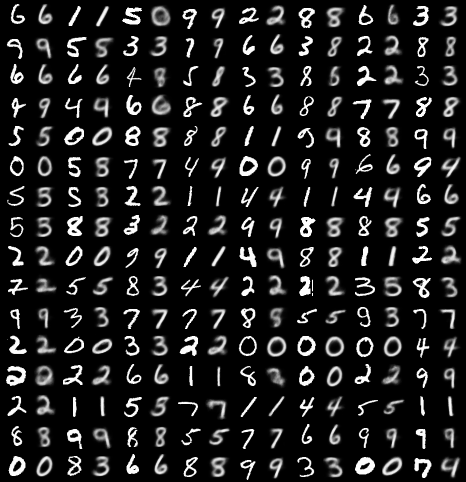 6 6 1 1 5 0 9 9 2 2 8 8 6 6 3 3
9 9 5 5 3 3 7 9 6 6 3 8 2 2 8 8
6 6 6 6 4 8 5 8 3 3 8 5 2 2 3 3
9 9 4 9 6 6 8 8 6 6 8 8 7 7 8 8
5 5 0 0 8 8 8 8 1 1 9 9 8 8 9 9
0 0 5 8 7 7 4 9 0 0 9 9 6 6 9 4
5 5 5 3 2 2 1 1 4 4 1 1 4 9 6 6
5 3 8 8 3 2 2 2 9 9 8 8 8 8 5 5
2 2 0 0 9 9 1 1 4 9 8 8 1 1 2 2
2 2 5 5 8 3 4 4 2 2 2 2 3 5 8 3
9 9 3 3 7 7 7 7 8 8 5 5 9 3 7 7
2 2 0 0 3 3 2 2 0 0 0 0 0 0 4 4
2 0 2 2 6 6 1 1 8 0 0 2 2 9 9
2 2 1 1 5 5 7 7 1 1 4 4 5 5 1 1
8 8 9 9 8 8 5 5 7 7 6 6 9 9 9 9
0 0 8 3 6 6 8 8 9 9 3 3 0 0 7 4